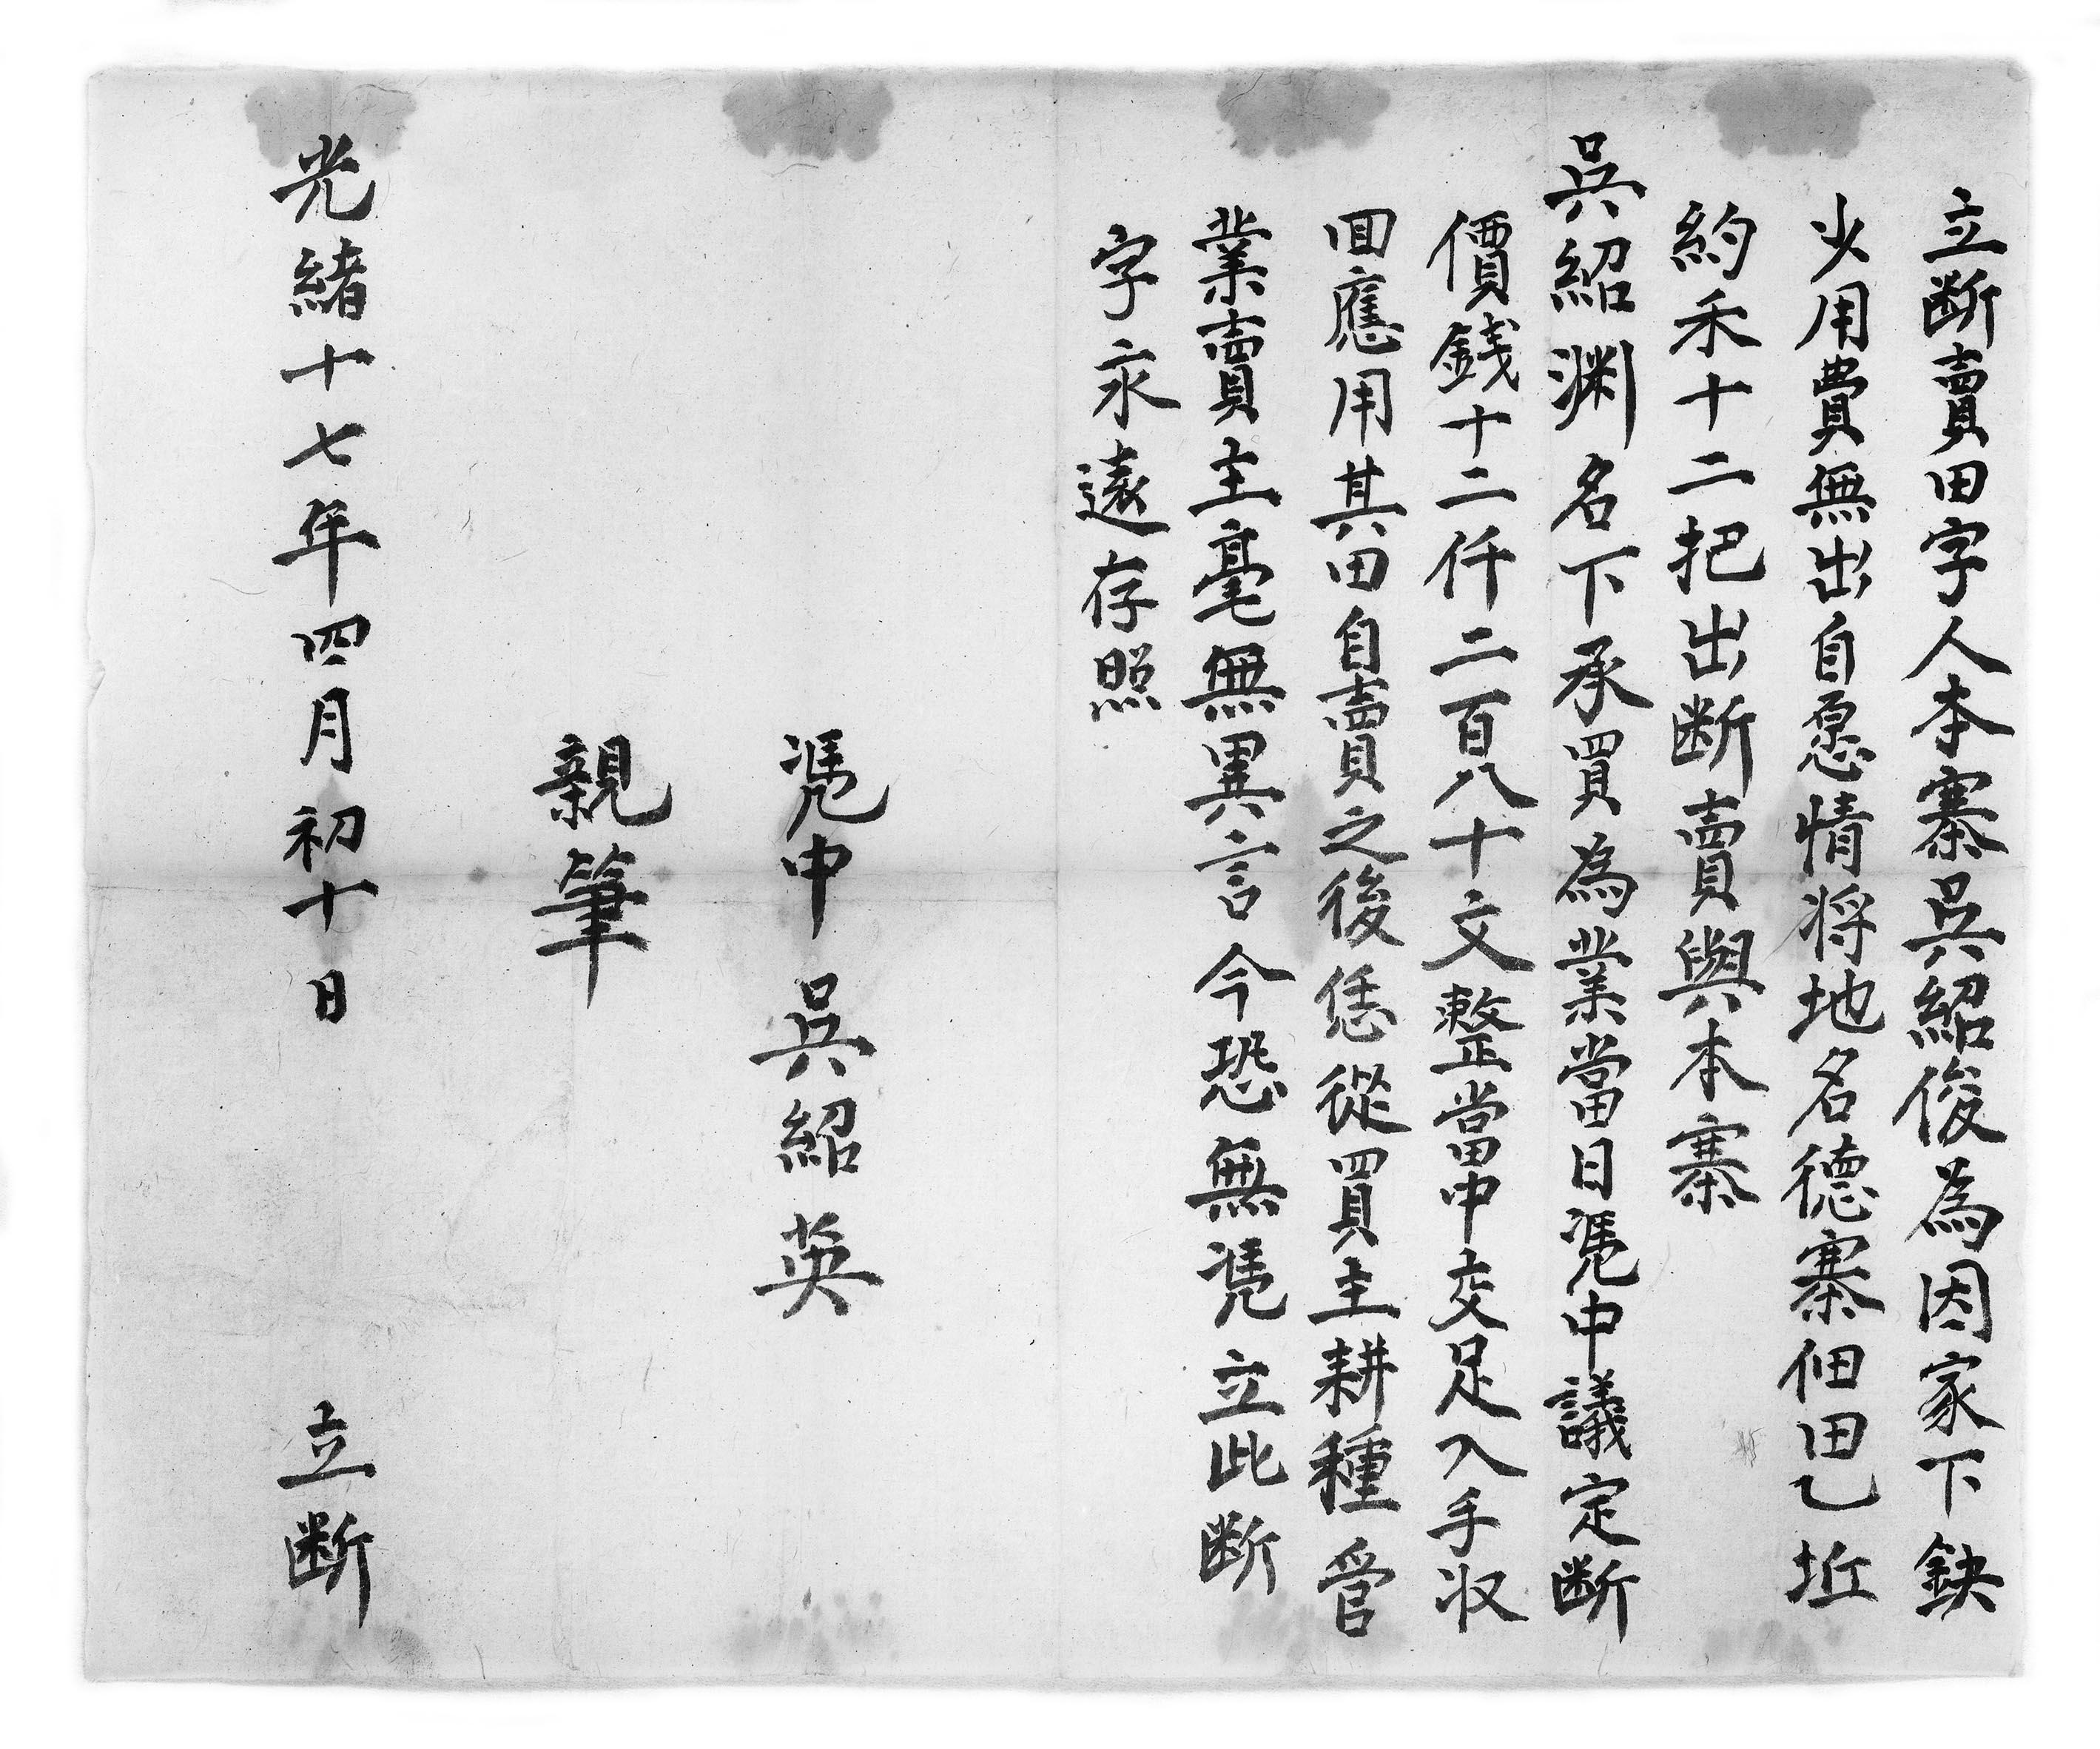 立断賣田字人本寨吳紹俊為因家下缺
少用費無出自愿情将地名德寨佃田乙坵
約禾十二把出断賣與本寨
吳紹渊名下承買為業當日凴中議定断
價錢十二仟二百八十文整當中交足入手收
回應用其田自賣之後恁從買主耕種管
業賣主毫無異言今恐無凴立此断
字永遠存照
凴中吳紹英
親筆
光緒十七年四月初十日 立断